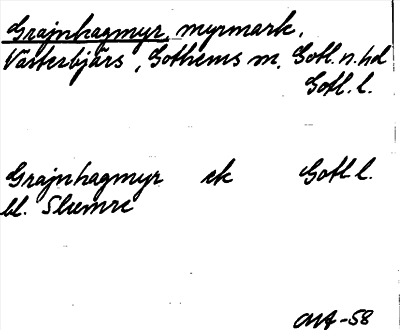 Grajnhagmyr, myrmark,
Västerbjärs, Gothems sn, Gotl. n. hd
Gotl. l.
Grajnhagmyr ek Gotl. l.
bl. Slumre
-58